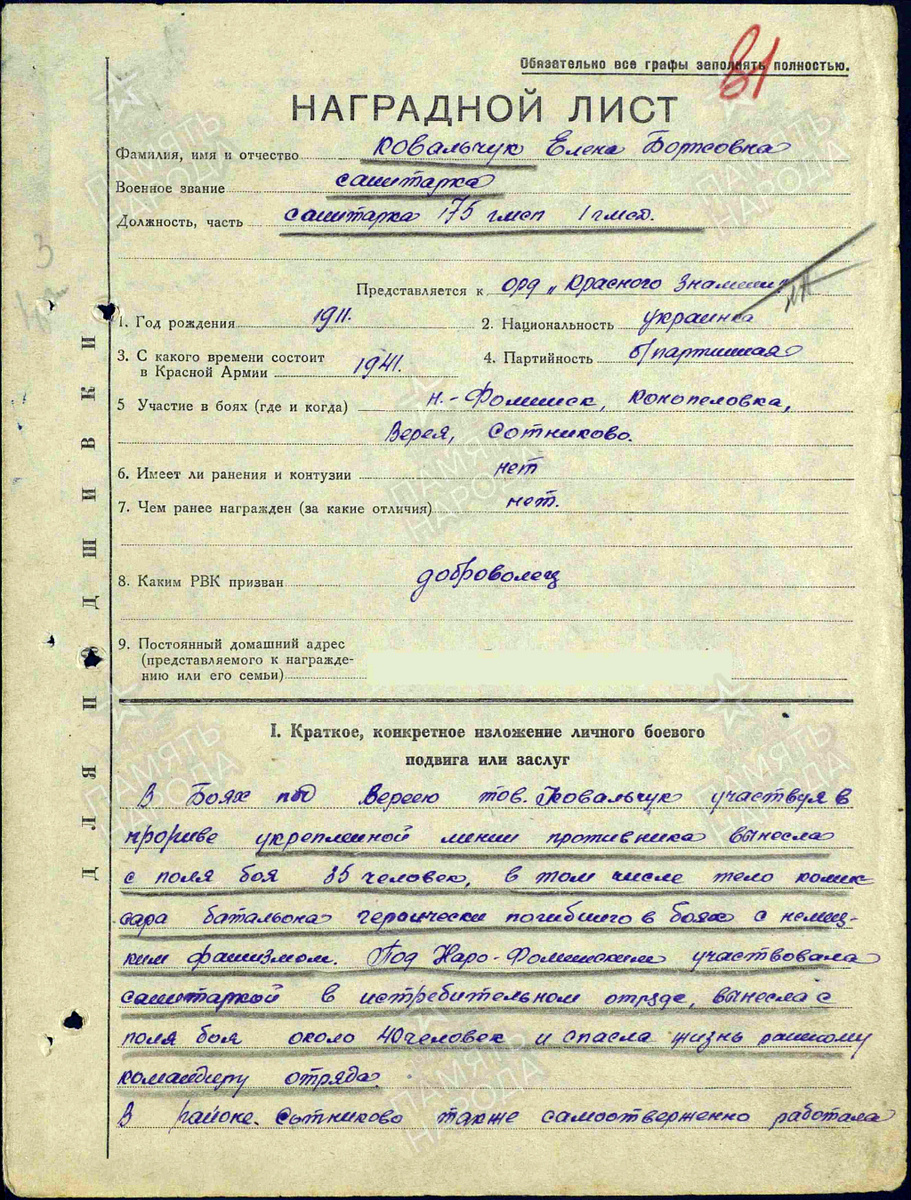 81
Обязательно все графы заполнять полностью.
НАГРАДНОЙ ЛИСТ
Фамилия, имя и отчество Ковальчук Елена Борисовна
Военное звание санитарка
Должность, часть санитарка 175 гмсп 1 гмсд.
3
Представляется к орд „Красного Знамени"
1. Год рождения 1911. 2. Национальность украинка
3. С какого времени состоит
в Красной Армии 1941. 4. Партийность б/партийная
5 Участие в боях (где и когда) Н.-Фоминск, Конопеловка,
Верея, Сотниково.
6. Имеет ли ранения и контузии нет
7. Чем ранее награжден (за какие отличия) нет.
8. Каким РВК призван доброволец
9. Постоянный домашний адрес
(представляемого к награжде-
нию или его семьи)
ДЛЯ ПОДШИВКИ
I. Краткое, конкретное изложение личного боевого
подвига или заслуг
В Боях под Вереею тов. Ковальчук участвуя в
прорыве укрепленной линии противника вынесла
с поля боя 35 человек, в том числе тело комис
сара батальона героически погибшего в боях с немец-
ким фашизмом. Под Наро-Фоминским участвовала
санитаркой в истребительном отряде, вынесла с
поля боя около 40 человек и спасла жизнь раненому
командиру отряда.
В районе. Сотниково также самоотверженно работала
ПАМЯТЬ НАРОДА
ПАМЯТЬ НАРОДА
ПАМЯТЬ НАРОДА
ПАМЯТЬ НАРОДА
ПАМЯТЬ НАРОДА
ПАМЯТЬ НАРОДА